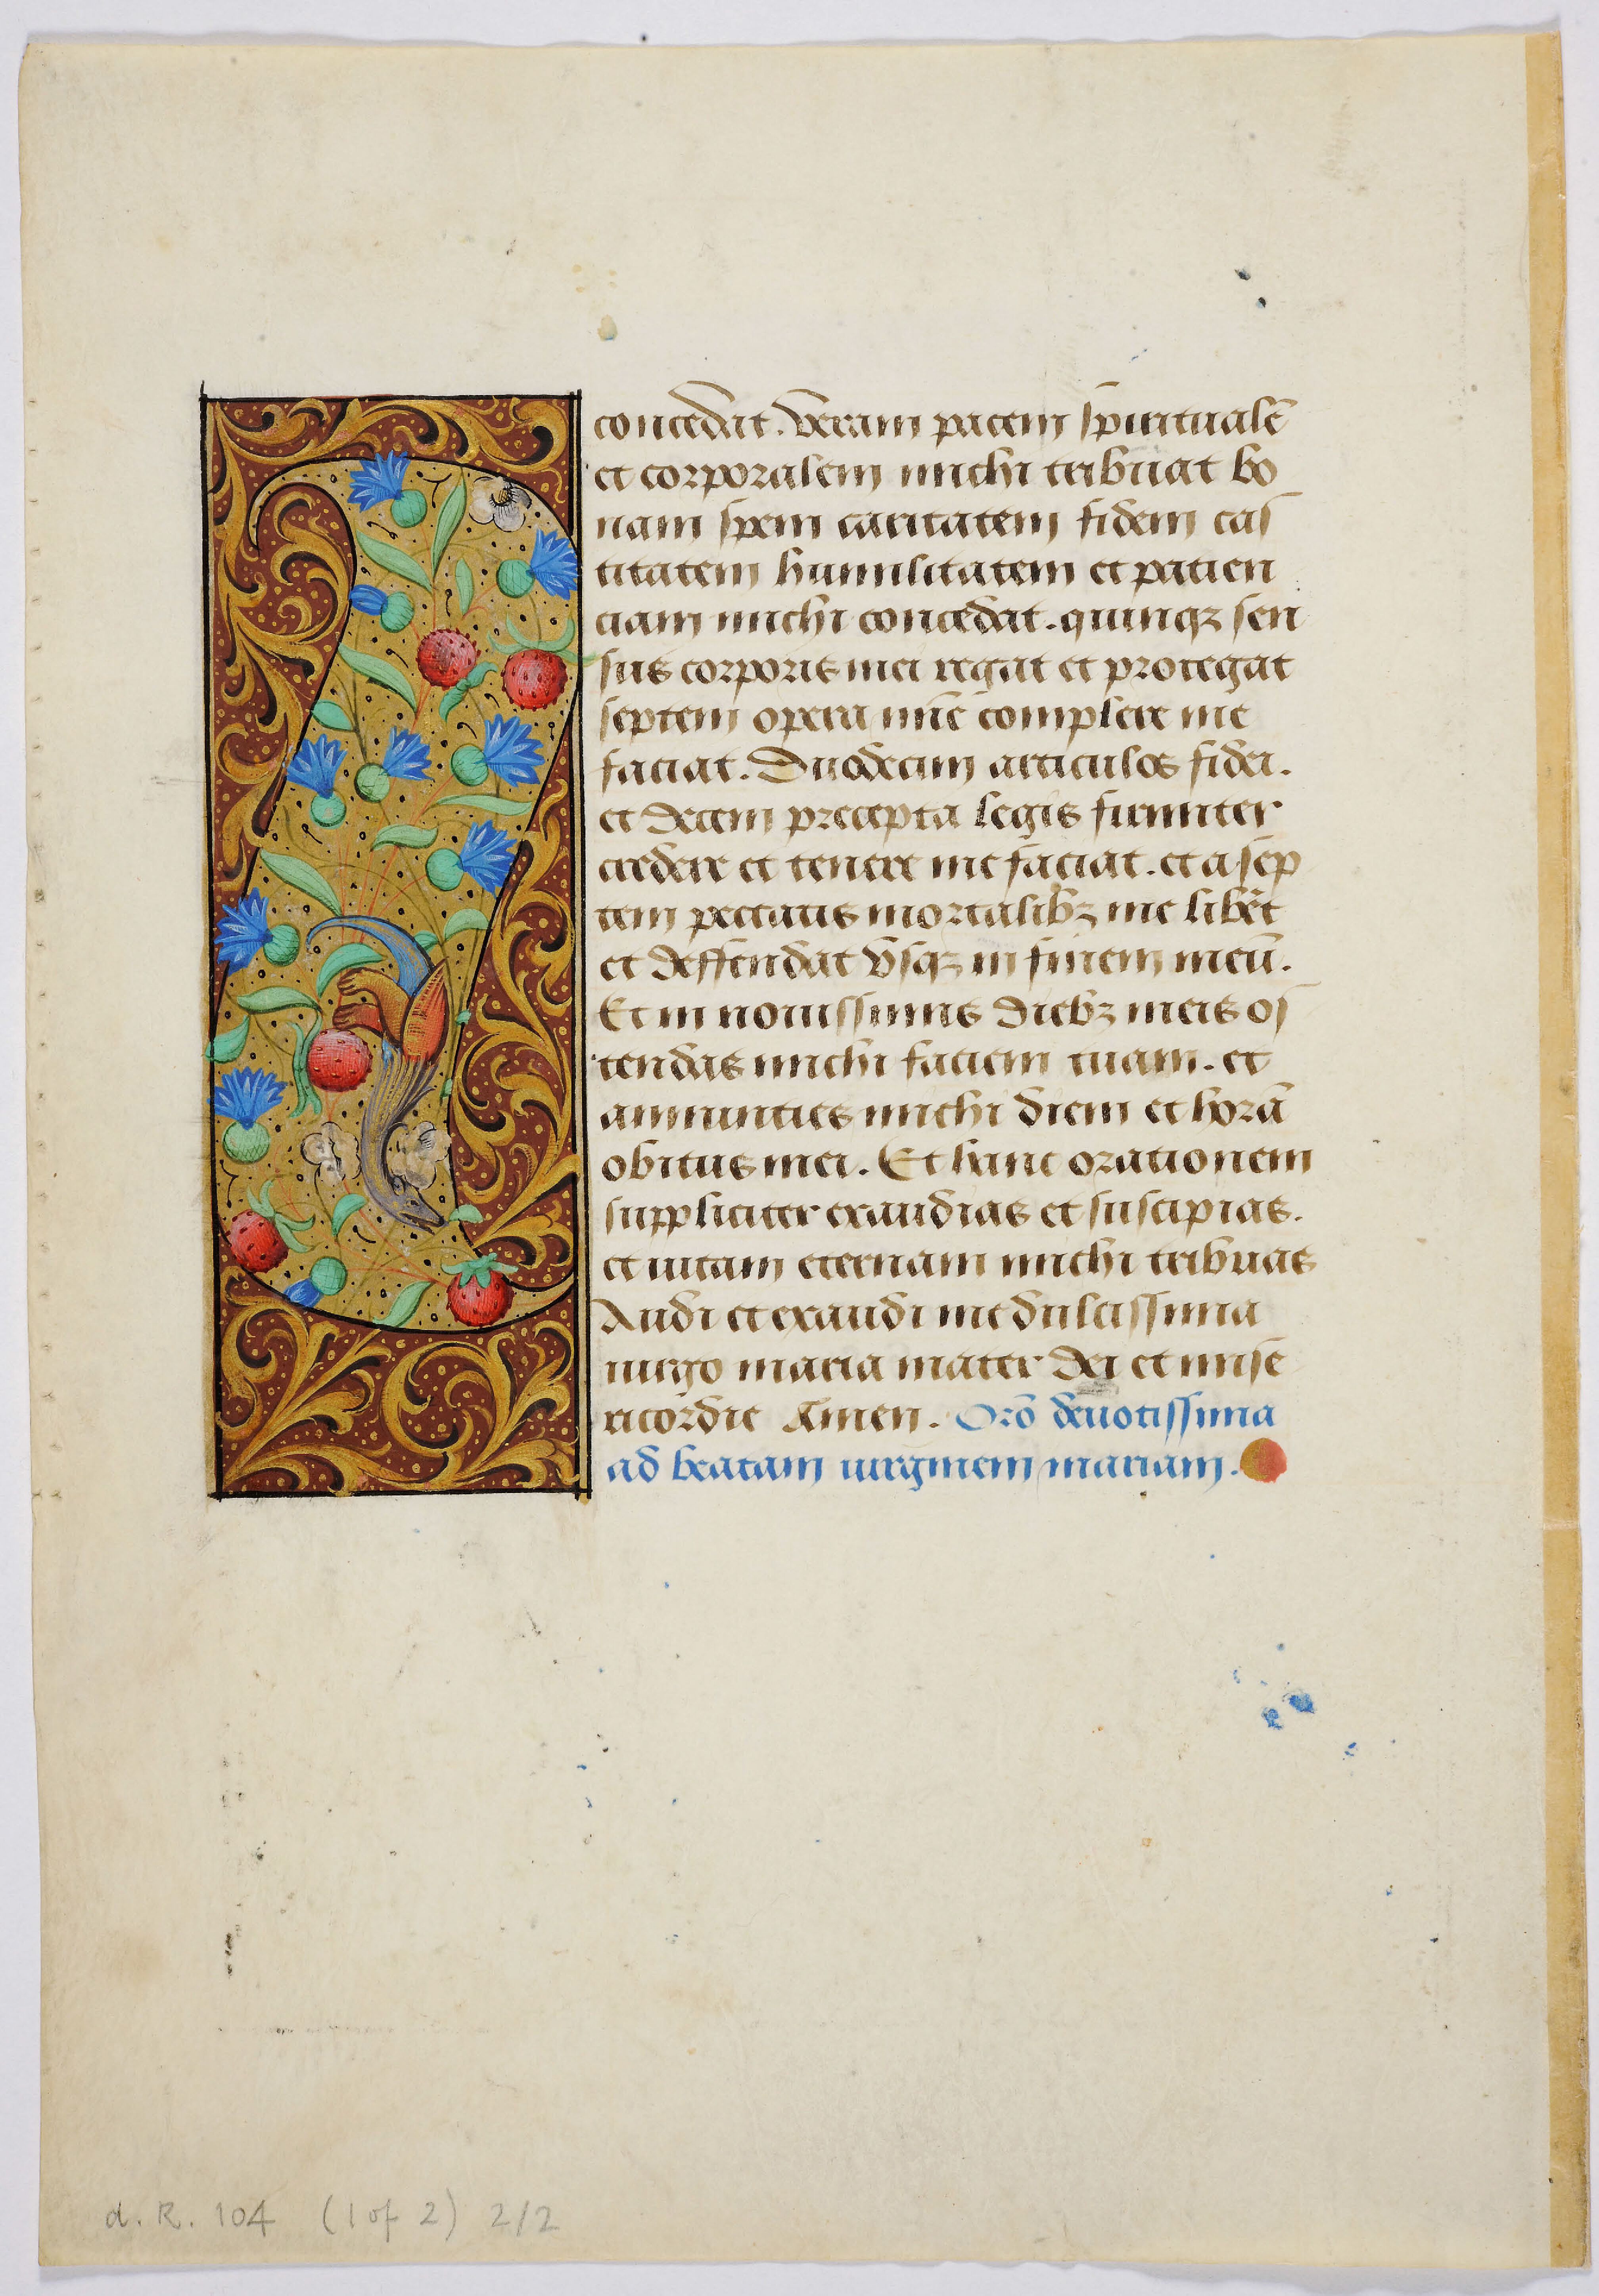 concedat. Veram pacem spiritualē
et corporalem michi tribuat bo
nam spem caritatem fidem cas
titatem humilitatem et patien
ciam michi concedat. quinqz sen
sus corporis mei regat et protegat
septem opera mīe complere me
faciat. Duodecim articulos fidei.
et decem precepta legis firmiter
credere et tenere me faciat. et a sep
tem peccatis mortalibz me libēt
et deffendat vsqz in finem meū.
Et in nouissimis diebz meis os
tendas michi faciem tuam. et
annuncies michi diem et horā
obitus mei. Et hanc orationem
suppliciter exaudias et suscipias.
et uitam eternam michi tribuas
Audi et exaudi me dulcissima
uirgo maria mater dei et mise
ricordie Amen. Orō deuotissima
ad beatam uirginem mariam.
d. R. 104 (1 of 2) 2/2